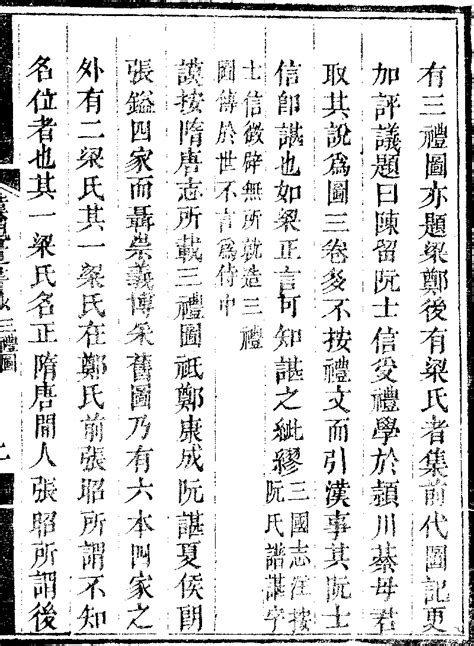 有三禮圖亦題梁鄭後有梁氏者集前代圖記更
加評議題曰陳留阮士信受禮學於潁川綦毋君
取其說爲圖三卷多不按禮文而引漢事其阮士
信卽諶也如梁正言可知諶之紕繆三國志注按阮氏譜諶字
士信徵辟無所就造三禮
圖傳於世不言爲侍中
謨按隋唐志所載三禮圖祇鄭康成阮諶夏侯朗
張鎰四家而聶崇義博采舊圖乃有六本四家之
外有二梁氏其一梁氏在鄭氏前張昭所謂不知
名位者也其一梁氏名正隋唐間人張昭所謂後
三禮圖